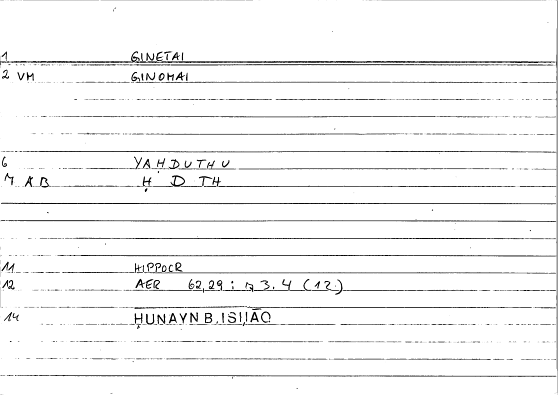 1 GINETAI
2 VM GINOMAI
6 YAḤDUTHU
7 AB Ḥ D TH
11 HIPPOCR
12 AER 62,29 : 73.4 (12.)
14 ḤUNAYN B. ISḤĀQ